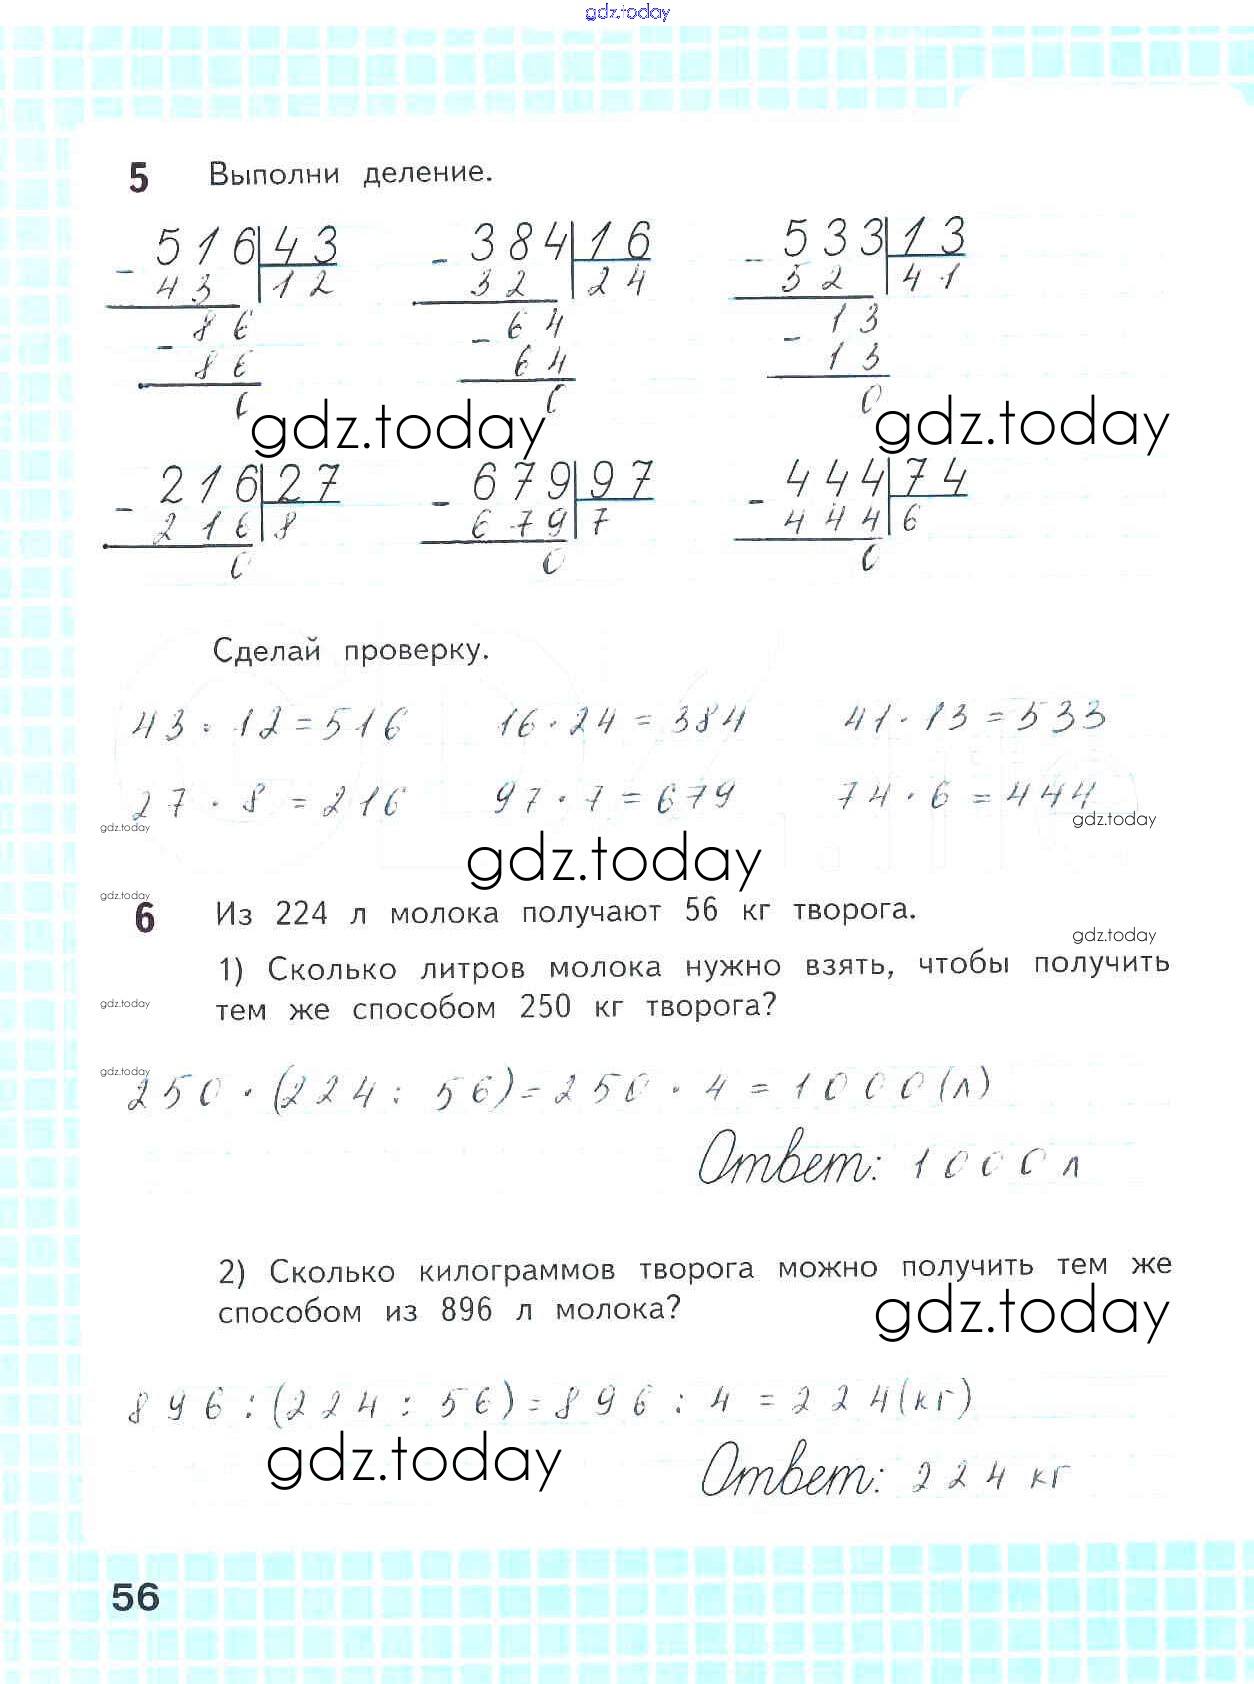 gdz.today
5 Выполни деление.
516 43 384 16 533 13
43 12 32 24 52 41
86 64 13
86 64 13
0 0 0
gdz.today gdz.today
216 27 679 97 444 74
216 8 679 7 444 6
0 0 0
Сделай проверку.
43 · 12 = 516 16 · 24 = 384 41 · 13 = 533
27 · 8 = 216 97 · 7 = 679 74 · 6 = 444
gdz.today gdz.today
gdz.today
gdz.today
6 Из 224 л молока получают 56 кг творога.
gdz.today
1) Сколько литров молока нужно взять, чтобы получить
тем же способом 250 кг творога?
gdz.today
gdz.today
250 · (224 : 56) = 250 · 4 = 1000 (л)
Ответ: 1000 л
2) Сколько килограммов творога можно получить тем же
способом из 896 л молока?
gdz.today
896 : (224 : 56) = 896 : 4 = 224 (кг)
gdz.today
Ответ: 224 кг
56